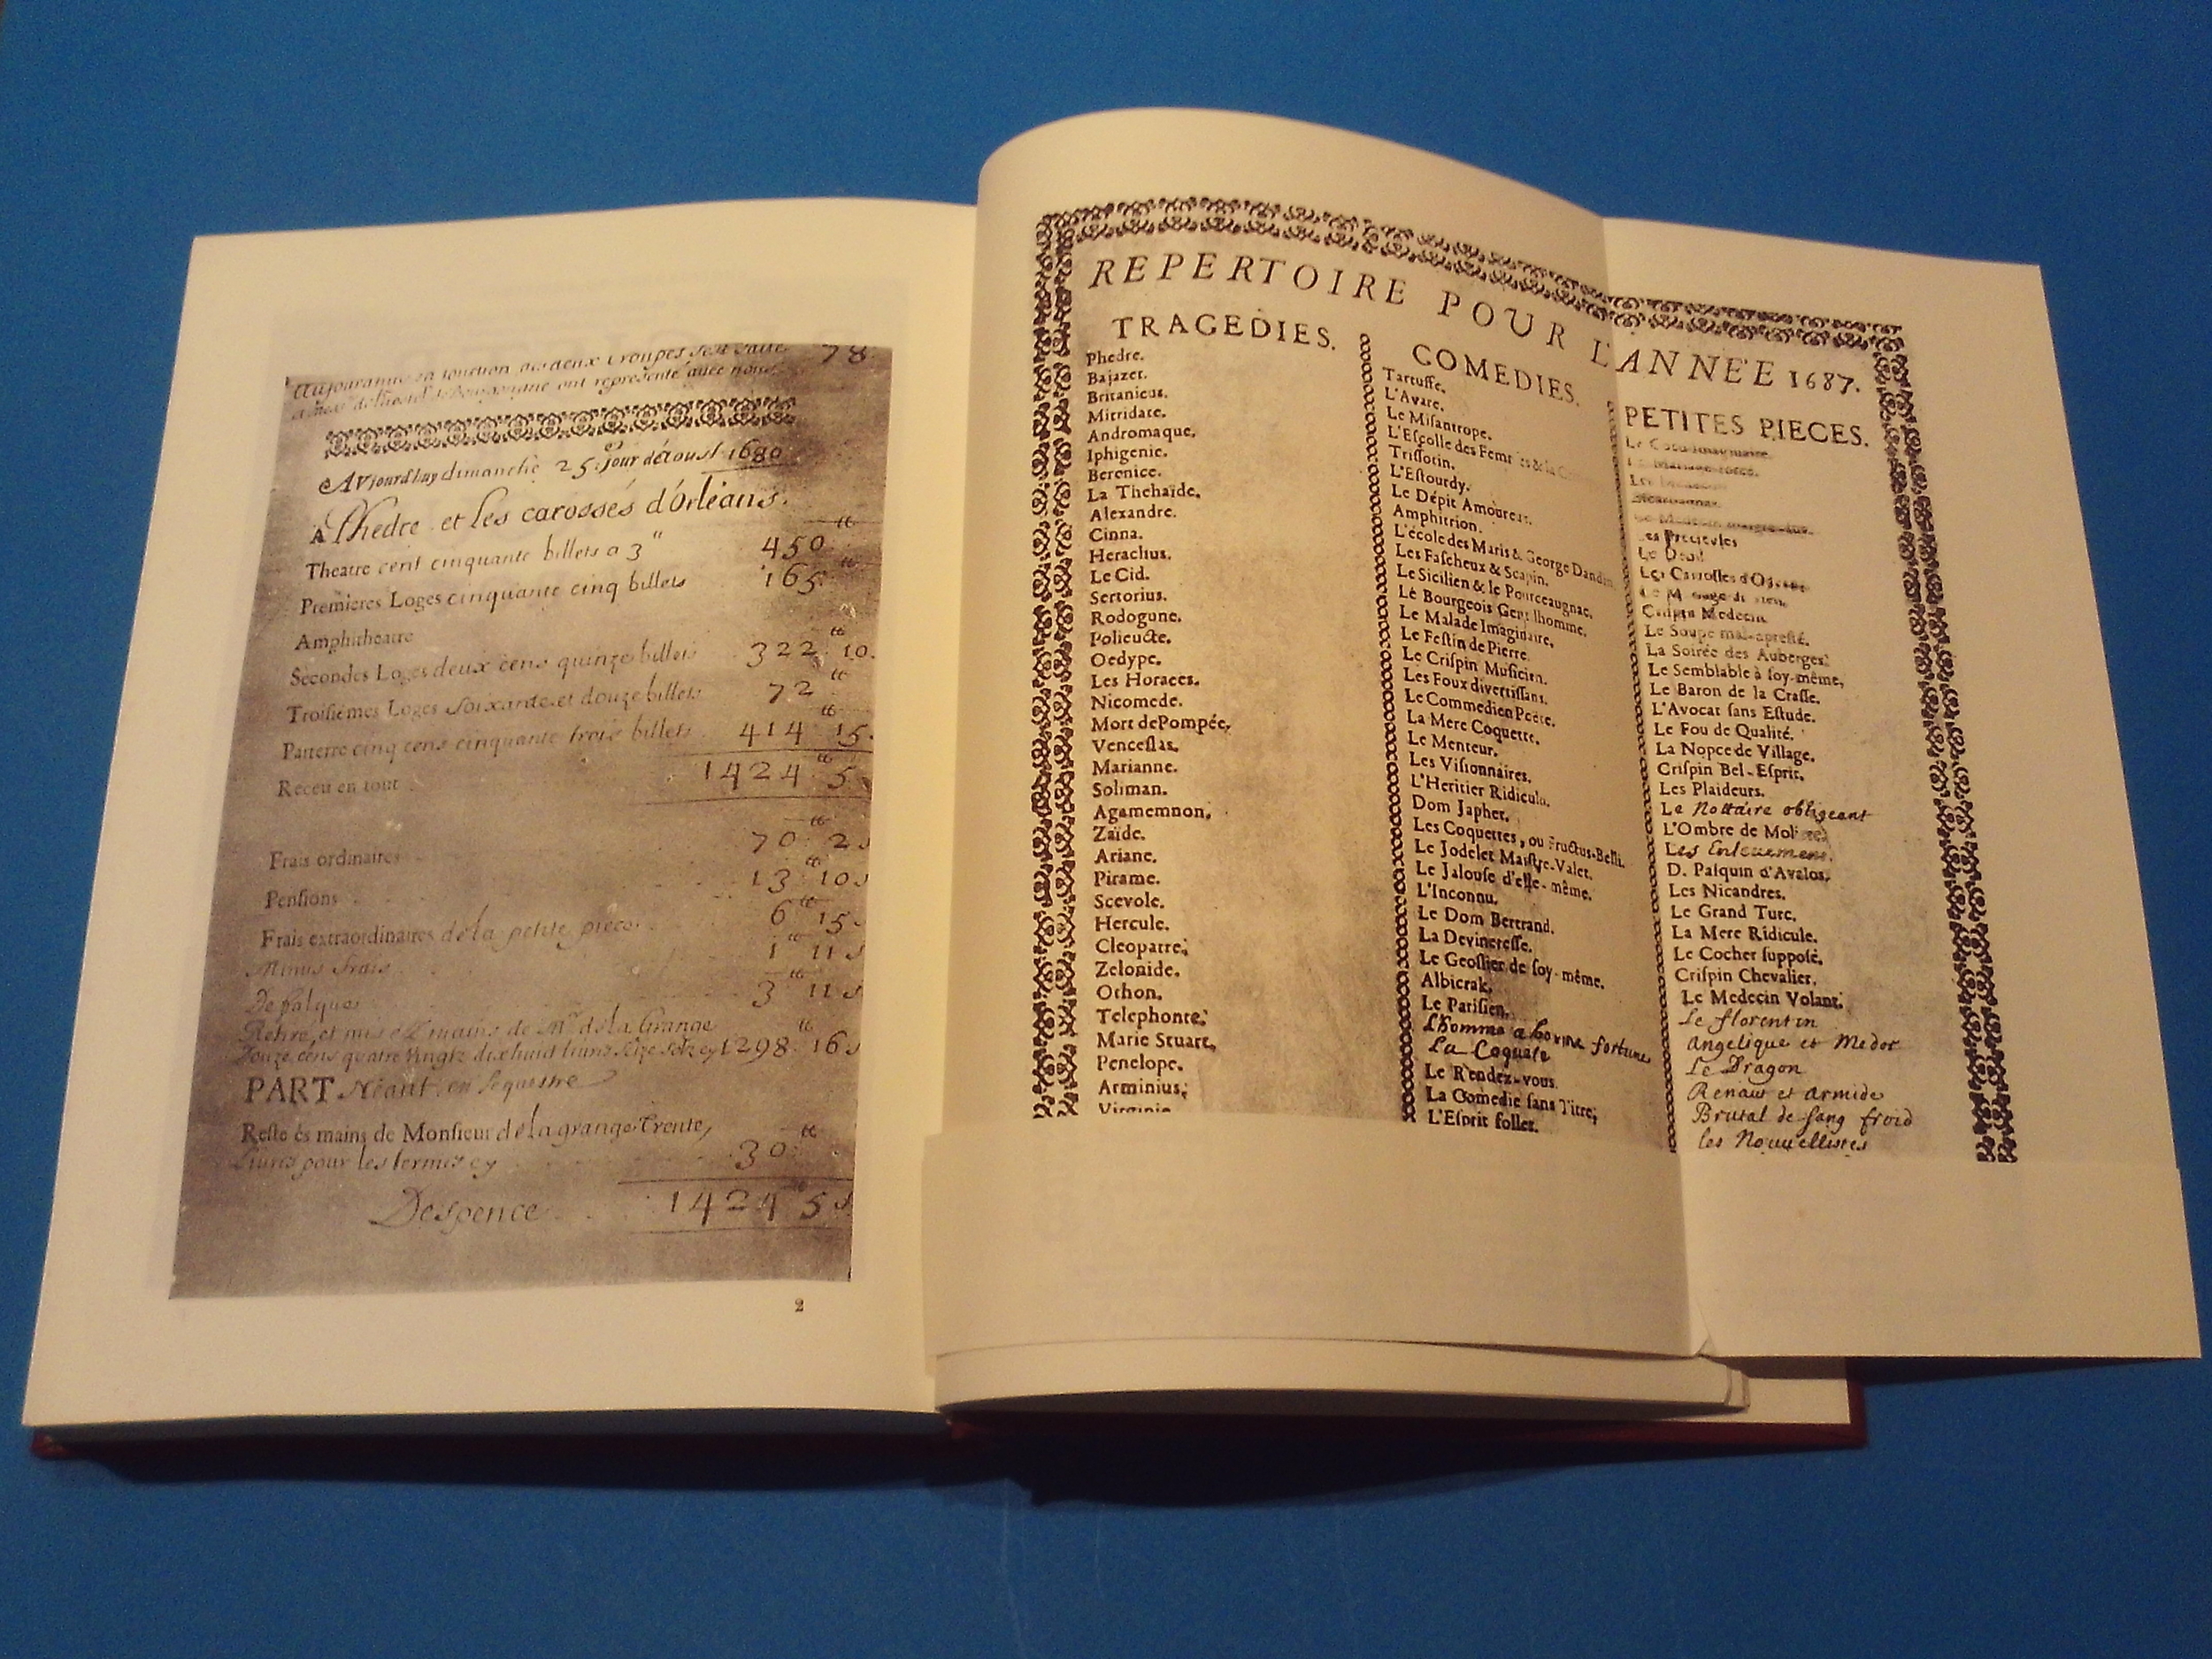 78
Aujourdhuy la jonction des deux troupes s'est faite
de l'hostel de Bourgongne ont representé avec nous
Avjourdhuy dimanche 25e jour d'Aoust 1680
A Phedre et les carosses d'Orleans.
Theatre cent cinquante billets a 3 450
Premieres Loges cinquante cinq billets 165
Amphitheatre
Secondes Loges deux cens quinze billets 322 10.
Troisiémes Loges soixante et douze billets 72
Parterre cinq cens cinquante trois billets 414 15.
Receu en tout 1424 5
Frais ordinaires 70 2s
Pensions 13 10s
Frais extraordinaires de la petite piece 6 15s
Menus frais 1 11s
Defalque 3 11s
mains de Mr de la Grange
Douze cens quatre vingtz dix huit livres seize solz cy 1298 16s
PART Néant en sequestre
Reste és mains de Monsieur de la grange Trente
Livres pour les termes cy 30
Despence 1424 5s
2
REPERTOIRE POUR L'ANNÉE 1687.
TRAGEDIES.
Phedre.
Bajazet.
Britanicus.
Mitridate.
Andromaque.
Iphigenie.
Berenice.
La Thebaïde.
Alexandre.
Cinna.
Heraclius.
Le Cid.
Sertorius.
Rodogune.
Polieucte.
Oedype.
Les Horaces.
Nicomede.
Mort de Pompée.
Venceslas.
Marianne.
Soliman.
Agamemnon.
Zaïde.
Ariane.
Pirame.
Scevole.
Hercule.
Cleopatre.
Zelonide.
Othon.
Telephonte.
Marie Stuart.
Penelope.
Arminius.
Virginie
COMEDIES.
Tartuffe.
L'Avare.
Le Misantrope.
L'Escolle des Femmes & la
Trissotin.
L'Estourdy.
Le Dépit Amoureux.
Amphitrion.
L'école des Maris & George Dandin
Les Fascheux & Scapin.
Le Sicilien & le Pourceaugnac.
Le Bourgeois Gentilhomme.
Le Malade Imaginaire.
Le Festin de Pierre.
Le Crispin Musicien.
Les Foux divertissans.
Le Commedien Poëte.
La Mere Coquette.
Le Menteur.
Les Visionnaires.
L'Heritier Ridicule.
Dom Japhet.
Les Coquettes, ou Fructus-Belli.
Le Jodelet Maistre-Valet.
Le Jalouse d'elle-même.
L'Inconnu.
Le Dom Bertrand.
La Devineresse.
Le Geollier de soy-même.
Albicrak.
Le Parisien.
L'homme a bonne fortune
La Coquete
Le Rendez-vous.
La Comedie sans Titre.
L'Esprit follet.
PETITES PIECES.
Le Cocu Imaginaire.
Le Mariage forcé.
Le Medecin malgré-luy.
Les Pretieuses
Le Deuil
Les Carosses d'Orleans
Le Mariage de rien.
Crispin Medecin
Le Soupé mal-apresté.
La Soirée des Auberges.
Le Semblable à soy-même.
Le Baron de la Crasse.
L'Avocat sans Estude.
Le Fou de Qualité.
La Nopce de Village.
Crispin Bel-Esprit.
Les Plaideurs.
Le Nottaire obligeant
L'Ombre de Moliere
Les Enleuemens.
D. Pasquin d'Avalos.
Les Nicandres.
Le Grand Turc.
La Mere Ridicule.
Le Cocher supposé.
Crispin Chevalier.
Le Medecin Volant.
Le florentin
Angelique et Medor
Le Dragon
Renaut et armide
Brutal de sang froid
les Nouuellistes